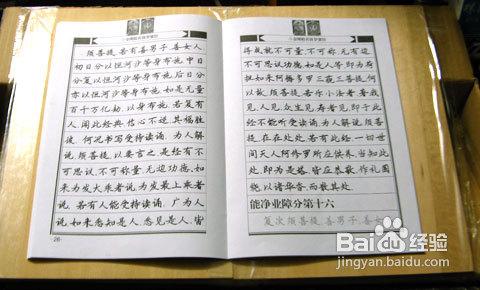 须菩提,若有善男子、善女人,
初日分以恒河沙等身布施,中日
分复以恒河沙等身布施,后日分
亦以恒河沙等身布施,如是无量
百千万亿劫,以身布施,若复有
人,闻此经典,信心不逆,其福胜
彼,何况书写受持读诵,为人解
说,须菩提,以要言之,是经有不
可思议,不可称量,无边功德,如
来为发大乘者说,为发最上乘者
说,若有人能受持读诵,广为人
说,如来悉知是人,悉见是人,皆
·26·
得成就不可量,不可称,无有边
不可思议功德,如是人等,即为荷
担如来阿耨多罗三藐三菩提,何
以故,须菩提,若乐小法者,著我
见,人见,众生见,寿者见,即于此
经不能听受读诵,为人解说,须菩
提,在在处处,若有此经,一切世
间天人阿修罗所应供养,当知此
处,即为是塔,皆应恭敬,作礼围
绕,以诸华香,而散其处。
能净业障分第十六
复次,须菩提,善男子、善女
Baidu经验
jingyan.baidu.com